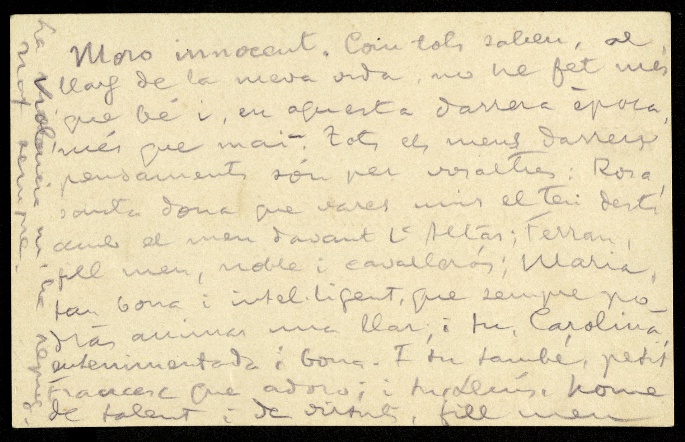 Moro innocent. Com tots sabeu, al
llarg de la meva vida, no he fet més
que bé i, en aquesta darrera època,
més que mai. Tots els meus darrers
pensaments són per vosaltres: Rosa,
santa dona que vares unir el teu destí
amb el meu davant l'Altar; Ferran,
fill meu, noble i cavallerós; Maria,
tan bona i intel·ligent, que sempre po-
dràs animar una llar; i tu, Carolina,
entenimentada i bona. I tu també, petit
Francesc que adoro; i tu, home
de talent i de virtuts, fill meu
La violència m'ha
mort sempre.